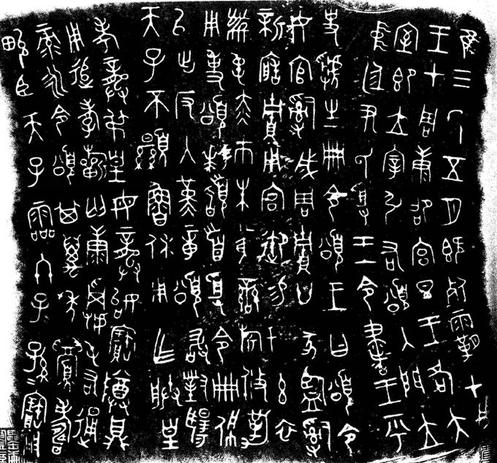 隹三年五月既死霸甲戌
王才周康卲宮旦王各大
室即立宰引右頌入門立
中廷尹氏受王令書王乎
史虢生冊令頌王曰頌令
女官𤔲成周賈廿家監𤔲
新造賈用宮御易女玄衣
黹屯赤巿朱黃䜌旂攸勒
用事頌拜稽首受令冊佩
以出反入堇章頌敢對揚
天子不顯魯休用乍朕皇
考龔叔皇母龔姒寶尊鼎
用追孝祈匄康𠣘屯右通
彔永令頌其萬年眉壽
畯臣天子霝冬子孫寶用